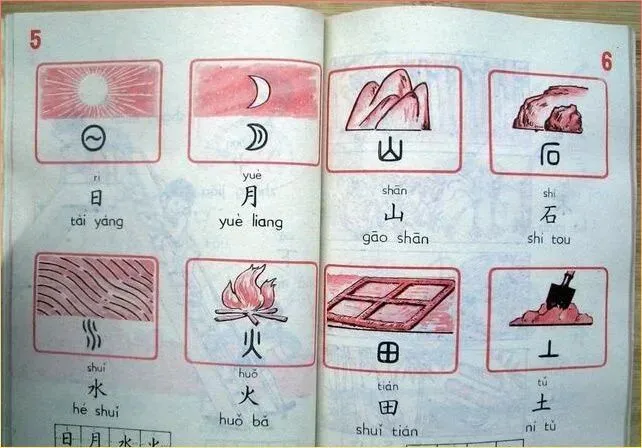 5
rì
yuè
日
月
tài yáng
yuè liang
shuǐ
huǒ
水
火
hé shuǐ
huǒ bǎ
日 月 水 火
6
shān
shí
山
石
gāo shān
shí tou
tián
tǔ
田
土
shuǐ tián
ní tǔ